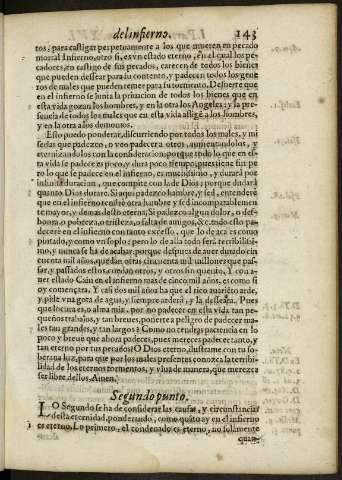 del infierno. 143
tos; para castigar perpetuamente a los que mueren en pecado
mortal Infierno, otro si, es vn estado eterno, en el qual los pe-
cadores, en castigo de sus pecados, carecen de todos los bienes
que pueden dessear para su contento, y padecen todos los gene
ros de males que pueden temer para su tormento. De suerte que
en el infierno se junta la priuacion de todos los bienes que en
esta vida gozan los hombres, y en la otra los Angeles: y la pre-
sencia de todos los males que en esta vida aflige a los hombres,
y en la otra a los demonios.
Esto puedo ponderar, discurriendo por todos los males, y mi
serias que padezco, o veo padecer a otros, aumentandolos, y
eternizandolos con la consideracion: porque todo lo que en es-
ta vida se padece es poco, y dura poco tiempo, pues tiene fin: pe
ro lo que se padece en el infierno, es muchissimo, y durarà por
infinita duracion, que compite con la de Dios: porque durarà
quanto Dios durare. Si aqui padezco hambre, y sed, entenderè
que en el infierno tendrè otra hambre y sed incomparablemen
te mayor, y demas desto eterna. Si padezco algun dolor, o des-
honra, o pobreza, o tristeza, o falta de amigos, &c. todo esto pa-
decerè en el infierno con tanto excesso, que lo de acà es como
pintado, y como vn soplo: pero lo de alla todo serà terribilissi-
mo, y nunca se ha de acabar, porque despues de auer durado cin
cuenta mil años, quedan otros cincuenta mil millones que pas-
sar, y passados estos, quedan otros, y otros sin quento. Y con a-
uer estado Cain en el infierno mas de cinco mil años, es como si
oy començara. Y casi dos mil años ha que el rico auariento arde,
y pide vna gota de agua, y siempre arderà, y la desseara. Pues
que locura es, o alma mia, por no padecer en esta vida tan pe-
queños trabajos, y tan breues, ponerte a peligro de padecer ma-
les tan grandes, y tan largos? Como no tendras paciencia en lo
poco y breue que ahora padeces, pues mereces padecer tanto, y
tan eterno por tus pecados? O Dios eterno, ilustrame con tu so-
berana luz, para que por los males presentes conozca la terribi-
lidad de los eternos tormentos, y viua de manera, que merezca
ser libre dellos. Amen.
Segundo punto.
LO Segundo se ha de considerar las causas, y circunstancias
desta eternidad, ponderando, como quãto ay en el infierno
es eterno. Lo primero, el condenado es eterno, no solamente
quan-